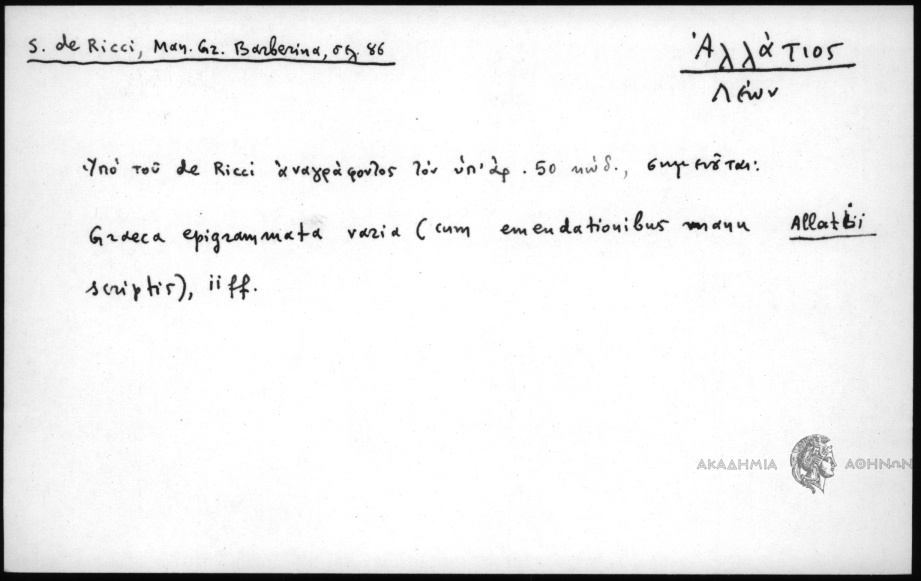 S. de Ricci, Man. Gr. Barberina, σελ. 86
Ἀλλάτιος
Λέων
Ὑπὸ τοῦ de Ricci ἀναγράφοντος τὸν ὑπ' ἀρ. 50 κώδ., σημειοῦται:
Graeca epigrammata varia (cum emendationibus manu Allatii
scriptis), ii ff.
ΑΚΑΔΗΜΙΑ ΑΘΗΝΩΝ